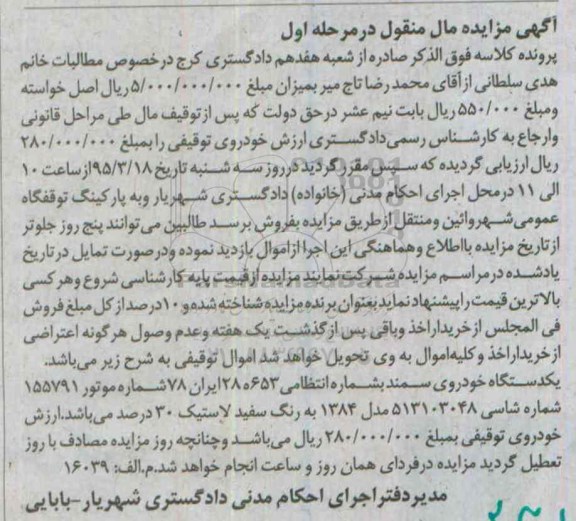 آگهی مزایده مال منقول درمرحله اول
پرونده کلاسه فوق الذکر صادره از شعبه هفدهم دادگستری کرج درخصوص مطالبات خانم
هدی سلطانی از آقای محمد رضا تاج میر بمیزان مبلغ ۵/۰۰۰/۰۰۰/۰۰۰ ریال اصل خواسته
ومبلغ ۵۵۰/۰۰۰ ریال بابت نیم عشر درحق دولت که پس ازتوقیف مال طی مراحل قانونی
وارجاع به کارشناس رسمی دادگستری ارزش خودروی توقیفی را بمبلغ ۲۸۰/۰۰۰/۰۰۰
ریال ارزیابی گردیده که سپس مقرر گردید درروز سه شنبه تاریخ ۹۵/۳/۱۸ از ساعت ۱۰
الی ۱۱ درمحل اجرای احکام مدنی (خانواده) دادگستری شهریار وبه پارکینگ توقفگاه
عمومی شهروائین ومنتقل ازطریق مزایده بفروش برسد طالبین می توانند پنج روز جلوتر
از تاریخ مزایده بااطلاع وهماهنگی این اجرا ازاموال بازدید نموده ودرصورت تمایل درتاریخ
یادشده درمراسم مزایده شرکت نمایند مزایده ازقیمت پایه کارشناسی شروع وهر کسی
بالاترین قیمت را پیشنهاد نماید بعنوان برنده مزایده شناخته شده و ۱۰ درصد از کل مبلغ فروش
فی المجلس ازخریدار اخذ وباقی پس ازگذشت یک هفته وعدم وصول هرگونه اعتراضی
از خریدار اخذ و کلیه اموال به وی تحویل خواهد شد اموال توقیفی به شرح زیر می باشد.
یکدستگاه خودروی سمند بشماره انتظامی ۶۵۳ه۲۸ ایران ۷۸ شماره موتور ۱۵۵۷۹۱
شماره شاسی ۵۱۳۱۰۳۰۴۸ مدل ۱۳۸۴ به رنگ سفید لاستیک ۳۰ درصد می باشد.ارزش
خودروی توقیفی بمبلغ ۲۸۰/۰۰۰/۰۰۰ ریال می باشد وچنانچه روز مزایده مصادف با روز
تعطیل گردید مزایده درفردای همان روز و ساعت انجام خواهد شد.م.الف: ۱۶۰۳۹
مدیردفتراجرای احکام مدنی دادگستری شهریار-بابایی